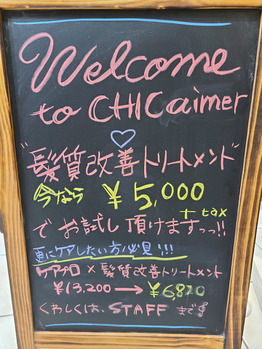 Welcome
to CHICaimer
"髪質改善トリートメント"
今なら ¥5,000
+tax
でお試し頂けますっっ!!
更にケアしたい方必見!!!
ケアプロ×髪質改善トリートメント
¥13,200→¥6820
くわしくは、STAFFまで